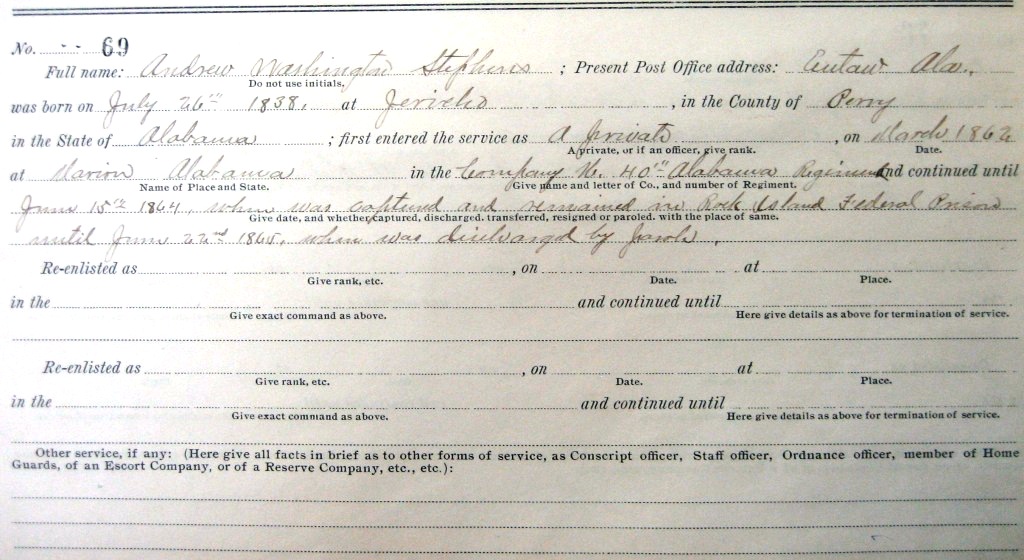 No. -- 69
Full name: Andrew Washington Stephens ; Present Post Office address: Eutaw Ala.,
Do not use initials.
was born on July 26th 1838, at Jericho , in the County of Perry
in the State of Alabama ; first entered the service as A private , on March 1862
A private, or if an officer, give rank. Date.
at Marion Alabama in the Company H. 40th Alabama Regiment and continued until
Name of Place and State. Give name and letter of Co., and number of Regiment.
June 15th 1864, when was captured and remained in Rock Island Federal Prison
Give date, and whether captured, discharged, transferred, resigned or paroled, with the place of same.
until June 22nd 1865, when was discharged by parole.
Re-enlisted as , on at
Give rank, etc. Date. Place.
in the and continued until
Give exact command as above. Here give details as above for termination of service.
Re-enlisted as , on at
Give rank, etc. Date. Place.
in the and continued until
Give exact command as above. Here give details as above for termination of service.
Other service, if any: (Here give all facts in brief as to other forms of service, as Conscript officer, Staff officer, Ordnance officer, member of Home
Guards, of an Escort Company, or of a Reserve Company, etc., etc.):